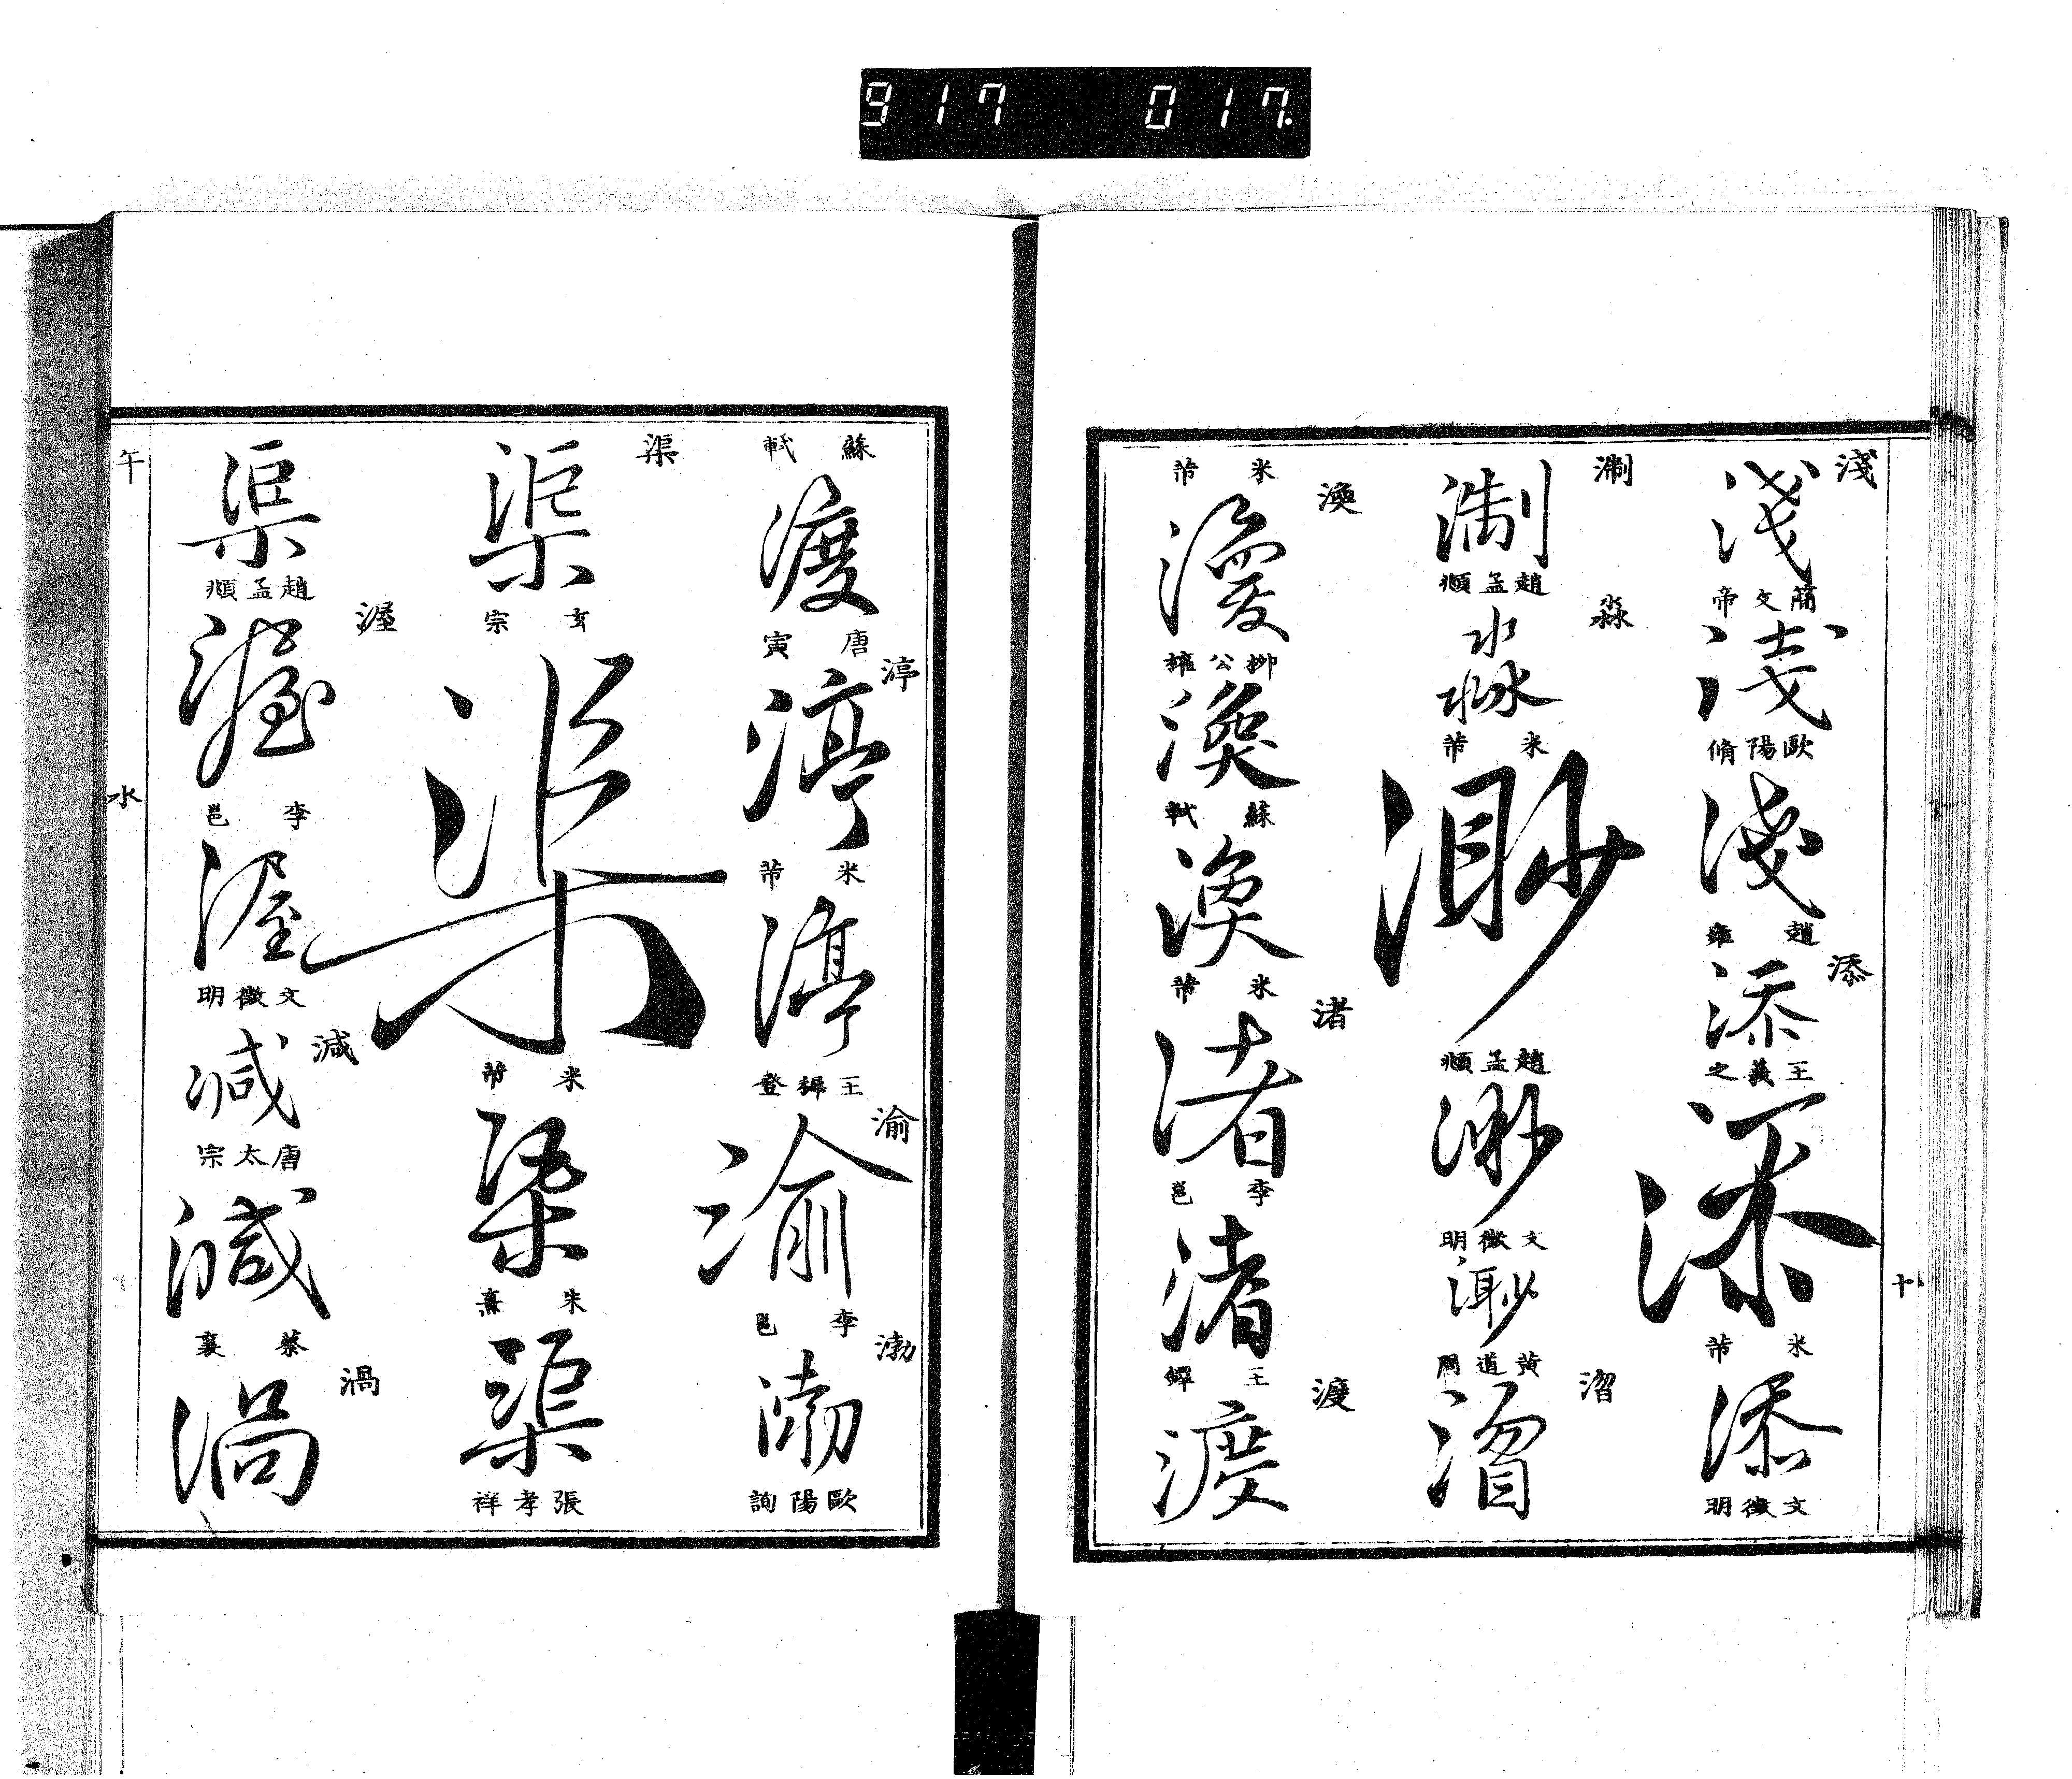 917 017.
十
淺
淺
簡文帝
淺
歐陽脩
淺
趙雍
添
添
王羲之
添
米芾
添
文徵明
淛
淛
趙孟頫
淼
淼
米芾
渺
趙孟頫
渺
文徵明
渺
黃道周
米芾
渙
渙
柳公權
渙
蘇軾
渙
米芾
渚
渚
李邕
渚
王鐸
渡
渡
蘇軾
渡
唐寅
渟
渟
米芾
渟
王穉登
渝
渝
李邕
渤
渤
歐陽詢
渠
渠
玄宗
渠
米芾
渠
朱熹
渠
張孝祥
渠
趙孟頫
渥
渥
李邕
渥
文徵明
減
減
唐太宗
減
蔡襄
渦
渦
午 水